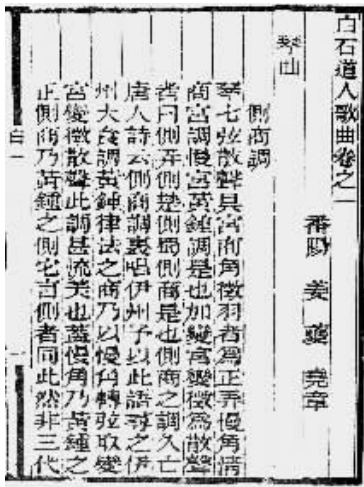 白石道人歌曲卷之一
番陽 姜 夔 堯章
琴曲
側商調
琴七弦散聲具宮商角徵羽者爲正弄慢角清
商宮調慢宮黃鍾調是也加變宮變徵爲散聲
者曰側弄側楚側蜀側商是也側商之調久亡
唐人詩云側商調裏唱伊州予以此語尋之伊
州大食調黃鍾律法之商乃以慢角轉弦取變
宮變徵散聲此調甚流美也蓋慢角乃黃鍾之
正側商乃黃鍾之側它言側者同此然非三代
白一